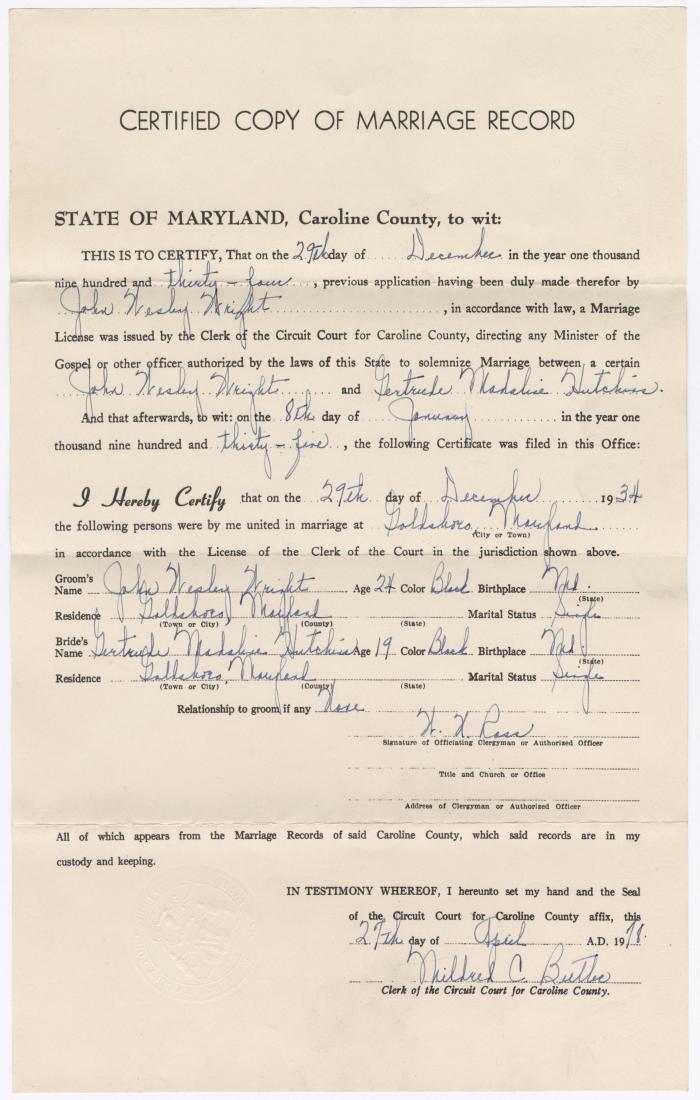 CERTIFIED COPY OF MARRIAGE RECORD
STATE OF MARYLAND, Caroline County, to wit:
THIS IS TO CERTIFY, That on the 29th day of December in the year one thousand
nine hundred and thirty-four, previous application having been duly made therefor by
John Wesley Wright, in accordance with law, a Marriage
License was issued by the Clerk of the Circuit Court for Caroline County, directing any Minister of the
Gospel or other officer authorized by the laws of this State to solemnize Marriage between a certain
John Wesley Wright and Gertrude Madaline Hutchins.
And that afterwards, to wit: on the 8th day of January in the year one
thousand nine hundred and thirty-five, the following Certificate was filed in this Office:
I Hereby Certify that on the 29th day of December 1934
the following persons were by me united in marriage at Goldsboro, Maryland
(City or Town)
in accordance with the License of the Clerk of the Court in the jurisdiction shown above.
Groom's
Name John Wesley Wright Age 24 Color Black Birthplace Md.
(State)
Residence Goldsboro, Maryland Marital Status Single
(Town or City) (County) (State)
Bride's
Name Gertrude Madaline Hutchins Age 19 Color Black Birthplace Md.
(State)
Residence Goldsboro, Maryland Marital Status Single
(Town or City) (County) (State)
Relationship to groom, if any None
W. W. Ross
Signature of Officiating Clergyman or Authorized Officer
Title and Church or Office
Address of Clergyman or Authorized Officer
All of which appears from the Marriage Records of said Caroline County, which said records are in my
custody and keeping.
IN TESTIMONY WHEREOF, I hereunto set my hand and the Seal
of the Circuit Court for Caroline County affix, this
27th day of April A.D. 1978.
Mildred C. Butler
Clerk of the Circuit Court for Caroline County.